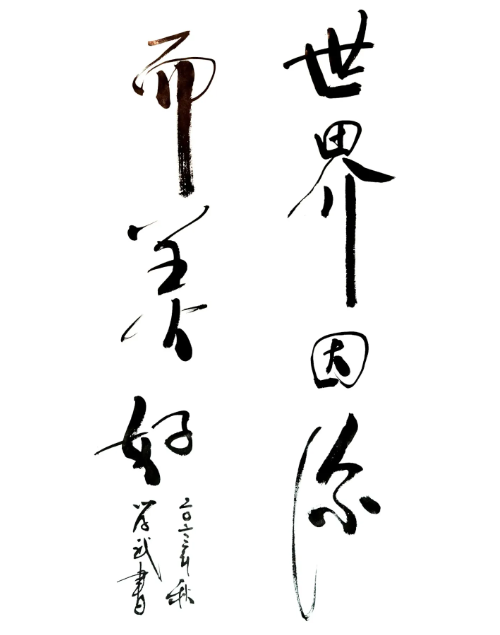 世界因你
而美好
二〇二三年秋
学武书